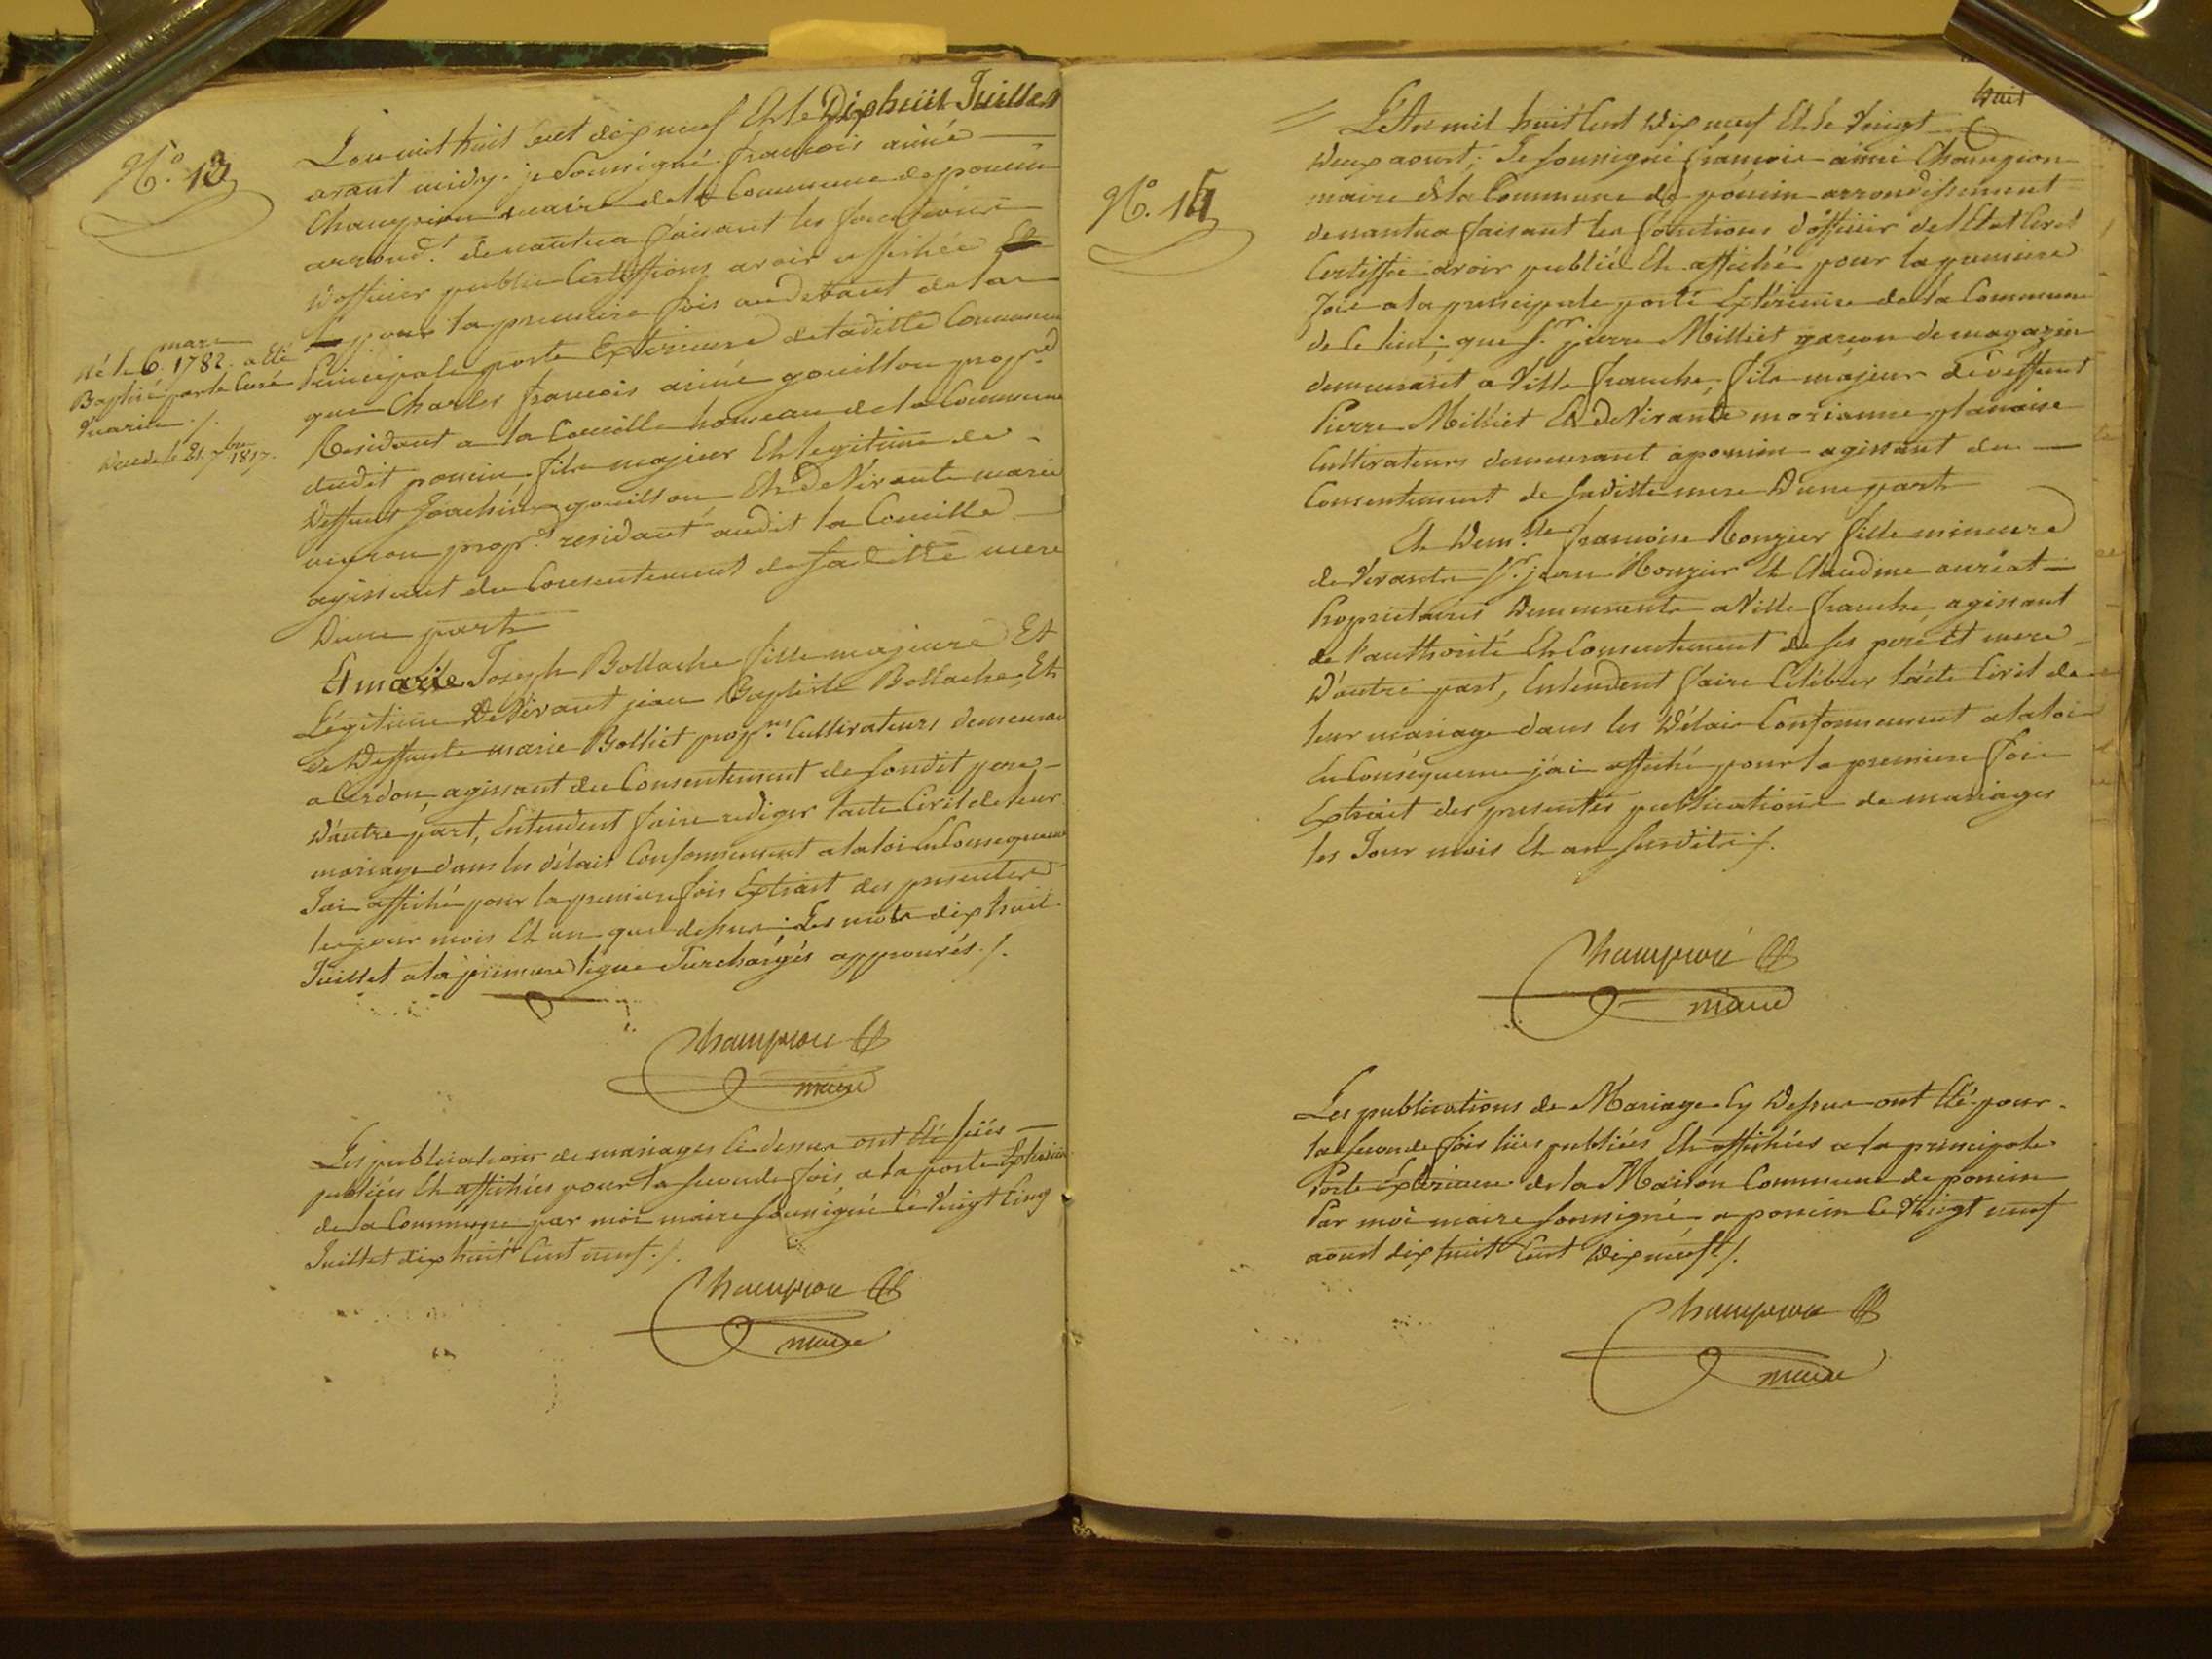 N.º 13
L'an mil huit cent dix neuf Et le Dixhuit Juillet
avant midy. je Soussigné françois aimé
Champion maire de la Commune de poncin
arrond.t denantua faisant les fonctions
d'officier public Certiffions avoir affichée Et
pour la premiere fois audevant de la
Principale porte Exterieure de laditte Commune
que Charles françois aimé gouillou prop.re
Residant a la Coueille hameau de la Commune
dudit poncin, fils majeur Et legitime de
deffunt Joachim gouillou Et de Vivante marie
prop.re residant audit la Coueille
agissant du Consentement de sa ditte mere
D'une part
né le 6 mars 1782. a Eté
Baptisé par le Curé
Vuarin ./.
decedé le 21 7bre 1817.
Et marie Joseph Bollache fille majeure Et
Légitime de Vivant jean Baptiste Bollache, Et
de Deffunte marie Bolliet prop.res Cultivateurs demeurant
a Cerdon, agissant du Consentement de sondit pere
D'autre part, Entendent faire rediger l'acte Civil de leur
mariage dans les délais Conformement a la loi En Consequence
J'ai affiché pour la premiere fois Extrait des presentes
les jour mois Et an que dessus. Les mots dix huit
Juillet a la premiere ligne Surchargés approuvés ./.
Champion
maire
Les publications de mariages Ci dessus ont Eté luës
publiées Et affichées pour la seconde fois, a la porte Exterieure
de la Commune par moi maire soussigné le Vingt Cinq
Juillet dix huit Cent neuf ./.
Champion
maire
huit
N.º 14
L'An mil huit Cent Dix neuf Et le Vingt
Deux aoust, Je soussigné françois aimé Champion
maire de la Commune de poncin arrondissement
denantua faisant les fonctions d'officier de l'Etat Civil
Certiffie avoir publié Et affiché pour la premiere
fois a la principale porte Extérieure de la Commune
de Ce lieu; que S.r pierre Milliet garçon de magazin
demeurant a Ville franche, fils majeur de deffunt
Pierre Milliet Et de Vivante marianne
Cultivateurs demeurant a poncin agissant du
Consentement de sa ditte mere D'une part
Et Dem.lle françoise Ronzier fille mineure
de Vivants S.r jean Ronzier Et Claudine auriat
Proprietaires Demeurants a Ville franche agissant
de l'authorité Et Consentement de ses pere Et mere
D'autre part, Entendent faire Celébrer l'acte Civil de
leur mariage dans les Délais Conformement a la loi
En Conséquence j'ai affiché pour la premiere fois
Extrait des presentes publications de mariages
les Jour mois Et an susdits ./.
Champion
maire
Les publications de Mariage Cy Dessus ont Eté pour
la seconde fois luës publiées Et affichées a la principale
Porte Exterieure de la Maison Commune de poncin
Par moi maire soussigné a poncin le Vingt neuf
aoust dix huit Cent Dix neuf ./.
Champion
maire